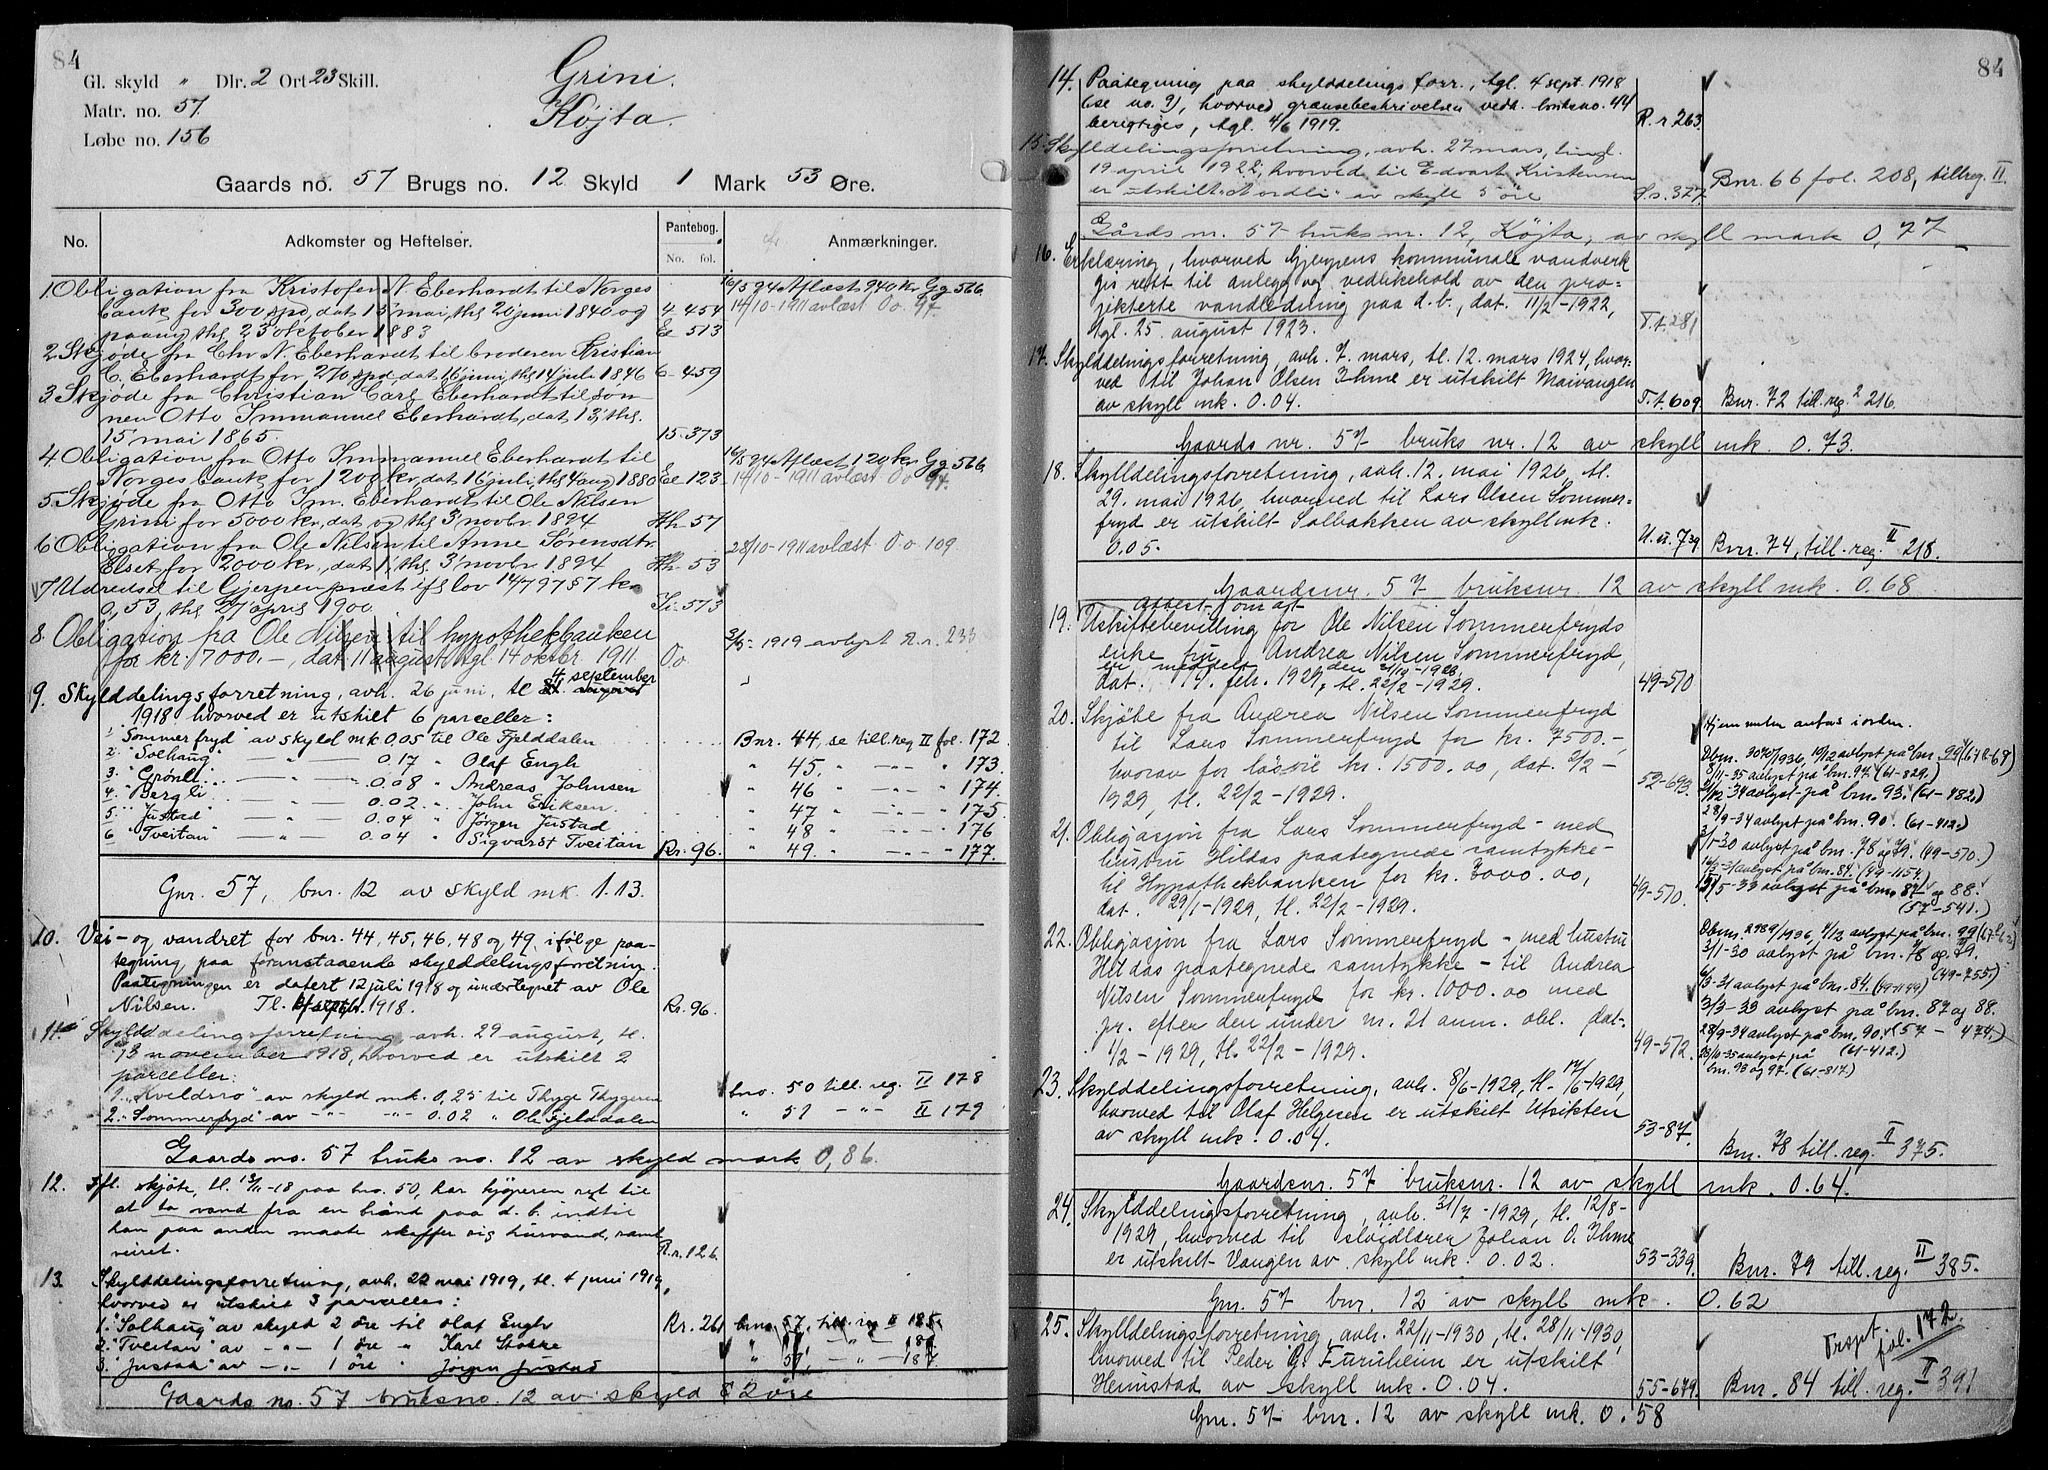 84
Gl. skyld " Dlr. 2 Ort 23 Skill.
Matr. no. 57.
Løbe no. 156
Grini.
Kojta.
Gaards no. 57 Brugs no. 12 Skyld 1 Mark 53 Øre.
No. Adkomster og Heftelser. Pantebog. No. fol. Anmærkninger.
1. Obligation fra Kristofer N. Eberhardt til Norges 16/5 94 Aflæst 240 kr Gg 566.
bank for 300 spd, dat 15 mai, thg 20 juni 1840 og 4-454 14/10-1911 avlæst Oo 97.
paany thg 23 oktober 1883 Ee 513
2. Skjøde fra Chr N. Eberhardt til broderen Kristian
C. Eberhardt for 270 spd, dat 16 juni, thg 14 juli 1846 6-459
3. Skjøde fra Christian Carl Eberhardt til søn
nen Otto Immanuel Eberhardt, dat 13, thg.
15 mai 1865. 15-373
4. Obligation fra Otto Immanuel Eberhardt til 16/5 94 Aflæst 120 kr Gg 566
Norges bank for 1200 kr, dat 16 juli, thg 4 aug 1880 Ee 123 14/10-1911 avlæst Oo 97.
5. Skjøde fra Otto Im. Eberhardt til Ole Nilsen
Grini for 5000 kr, dat og thg 3 novbr 1894 Hh 57
6 Obligation fra Ole Nilsen til Anne Sørensdtr. 28/10-1911 avlæst Oo 109.
Elset for 2000 kr, dat 1, thg 3 novbr 1894 Hh 53
7 Udredsel til Gjerpen præst ifl lov 14/7 97 § 7 kr
0,53, thg 27 april 1900 Ii 573
8. Obligation fra Ole Nilsen til hypothekbanken 3/5-1919 avlyst R.r. 233
for kr. 7000.-, dat 11 august, tgl 14 oktbr 1911 Oo
4 september
9. Skylddelingsforretning, avh. 26 juni, tl.
1918 hvorved er utskilt 6 parceller:
1. "Sommerfryd" av skyld mk 0,05 til Ole Fjelddalen Bnr. 44, se till. reg II fol. 172.
2. "Solhaug" — " — 0.17 " Olaf Engh " 45. " — " — " 173.
3. "Grønli" — " — 0.08 " Andreas Johnsen " 46 " — " — " 174.
4. "Bergli" — " — 0.02 " John Eriksen " 47 " — " — " 175.
5. "Justad" — " — 0.04 " Jørgen Justad " 48 " — " — " 176
6 "Tveitan" — " — 0.04 " Sigvardt Tveitan Rr. 96. " 49. " — " — " 177.
Gnr. 57, bnr. 12 av skyld mk. 1.13.
10. Vei- og vandret for bnr. 44, 45, 46, 48 og 49, ifølge paa-
tegning paa foranstaaende skylddelingsforretning.
Paategningen er datert 12 juli 1918 og undertegnet av Ole
Nilsen. Tl. 4 septbr. 1918. Rr. 96.
11. Skylddelingsforretning avh. 29 august, tl.
13 november 1918, hvorved er utskilt 2
parceller:
1. "Kveldsro" av skyld mk. 0,25 til Thyge Thygesen bno. 50 till. reg. II 178
2. "Sommerfryd" av —"— —"— 0.02 " Ole Fjelddalen " 51 —"— II 179
Gaards no. 57 bruks no. 12 av skyld mark 0,86.
12. Ifl. skjøte, tl. 13/11-18 paa bno. 50, har kjøperen ret til
at ta vand fra en brønd paa d.b. indtil
han paa anden maate skaffer sig husvand, samt
veiret. R.r. 126.
13. Skylddelingsforretning, avh. 22 mai 1919, tl. 4 juni 1919,
hvorved er utskilt 3 parceller:
1. "Solhaug" av skyld 2 øre til Olaf Engh Rr. 261 bno. 57, till. reg II 185.
2. "Tveitan" av —"— 1 øre " Karl Stokke
3. "Justad" av —"— 1 øre " Jørgen Justad " 59, —"— 187
Gaards no. 57 bruksno. 12 av skyld 82 øre
84
14. Paategning paa skylddelings forr., tgl. 4 sept. 1918
(se no. 9), hvorved grænsebeskrivelsen vedk. bruksno. 44
berigtiges, tgl. 4/6 1919. R.r. 263.
15. Skylddelingsforretning, avh. 27 mars, tingl.
19 april 1922, hvorved til Edvart Kristensen
er utskilt "Nordli" av skyld 5 øre S.s. 377 Bnr. 66 fol. 208, tillreg. II.
Gårds nr. 57 bruks nr. 12, Køjta, av skyll mark 0,77
16. Erklæring, hvorved Gjerpens kommunale vandverk
gis rett til anlegg og vedlikehold av den pro-
jekterte vandledning paa d.b., dat. 11/2-1922,
tgl. 25. august 1923. T.t. 281
17. Skylddelingsforretning, avh. 7. mars, tl. 12. mars 1924, hvor-
ved til Johan Olsen Ihme er utskilt Maivangen
av skyll mk. 0.04. T.t. 609. Bnr. 72 till. reg. 2 216.
Gaards nr. 57 bruks nr. 12 av skyll mk. 0.73.
18. Skylldelingsforretning, avh. 12. mai 1926, tl.
29. mai 1926, hvorved til Lars Olsen Sommer-
fryd er utskilt Solbakken av skyll mk.
0.05. U.u. 739 Bnr. 74, till. reg. II 218.
Gaardsnr. 57 bruksnr. 12 av skyll mk. 0.68
Attest om at
19. Uskiftebevilling for Ole Nilsen Sommerfryds
enke fru Andrea Nilsen Sommerfryd,
er meddelt den 21/10-1926,
dat. 19. febr. 1929, tl. 22/2-1929. 49-570
20. Skjøte fra Andrea Nilsen Sommerfryd Hjemmelen anføres iorden.
til Lars Sommerfryd for kr. 7500.-,
hvorav for løsøre kr. 1500.00, dat. 2/2-
1929, tl. 22/2-1929. 52-693.
Dbnr. 3070/1936, 19/12 avlyst på bnr. 99 (67-68)
8/11-35 avlyst på bnr. 97. (61-829.)
3/12-34 avlyst på bnr. 93. (61-482.)
28/9-34 avlyst på bnr. 90. (61-412.)
21. Obligasjon fra Lars Sommerfryd - med
hustru Hildas paategnede samtykke -
til Hypothekbanken for kr. 3000.00,
dat. 29/1-1929, tl. 22/2-1929. 49-570.
3/1-30 avlyst på bnr. 78 og 79. (49-570.)
16/2-31 avlyst på bnr. 84. (49-1157.)
12/5-33 avlyst på bnr. 87 og 88.
(57-541.)
22. Obligasjon fra Lars Sommerfryd - med hustru
Hildas paategnede samtykke - til Andrea
Nilsen Sommerfryd for kr. 1000.00 med
pr. efter den under nr. 21 anm. obl. dat.
1/2-1929, tl. 22/2-1929. 49-572.
Dbnr. 2989/1936 4/12 avlyst på bnr. 99
3/1-30 avlyst på bnr. 78 og 79.
(49-755)
6/3-31 avlyst på bnr. 84. (49-1199)
3/3-33 avlyst på bnr. 87 og 88.
28/9-34 avlyst på bnr. 90. (57-474.)
23/10-35 avlyst på (61-412.)
bnr. 93 og 97. (61-817.)
23. Skylddelingsforretning, avh. 8/6-1929, tl. 17/6-1929,
hvorved til Olaf Helgesen er utskilt Utsikten
av skyll mk. 0.04. 53-87. Bnr. 78 till. reg. II 375.
Gaardsnr. 57 bruksnr. 12 av skyll mk. 0.64.
24. Skylddelingsforretning, avh. 31/7-1929, tl. 12/8-
1929, hvorved til sløidlærer Johan O. Ihme
er utskilt Vangen av skyll mk. 0.02. 53-339. Bnr. 79 till. reg. II 385.
Gnr. 57 bnr. 12 av skyll mk. 0.62
25. Skylldelingsforretning, avh. 22/11-1930, tl. 28/11-1930,
hvorved til Peder G. Furuheim er utskilt
Heimstad av skyll mk. 0.04. 55-679. Bnr. 84 till. reg. II 391
Trspt. fol. 172.
Gnr. 57 bnr. 12 av skyll mk. 0.58